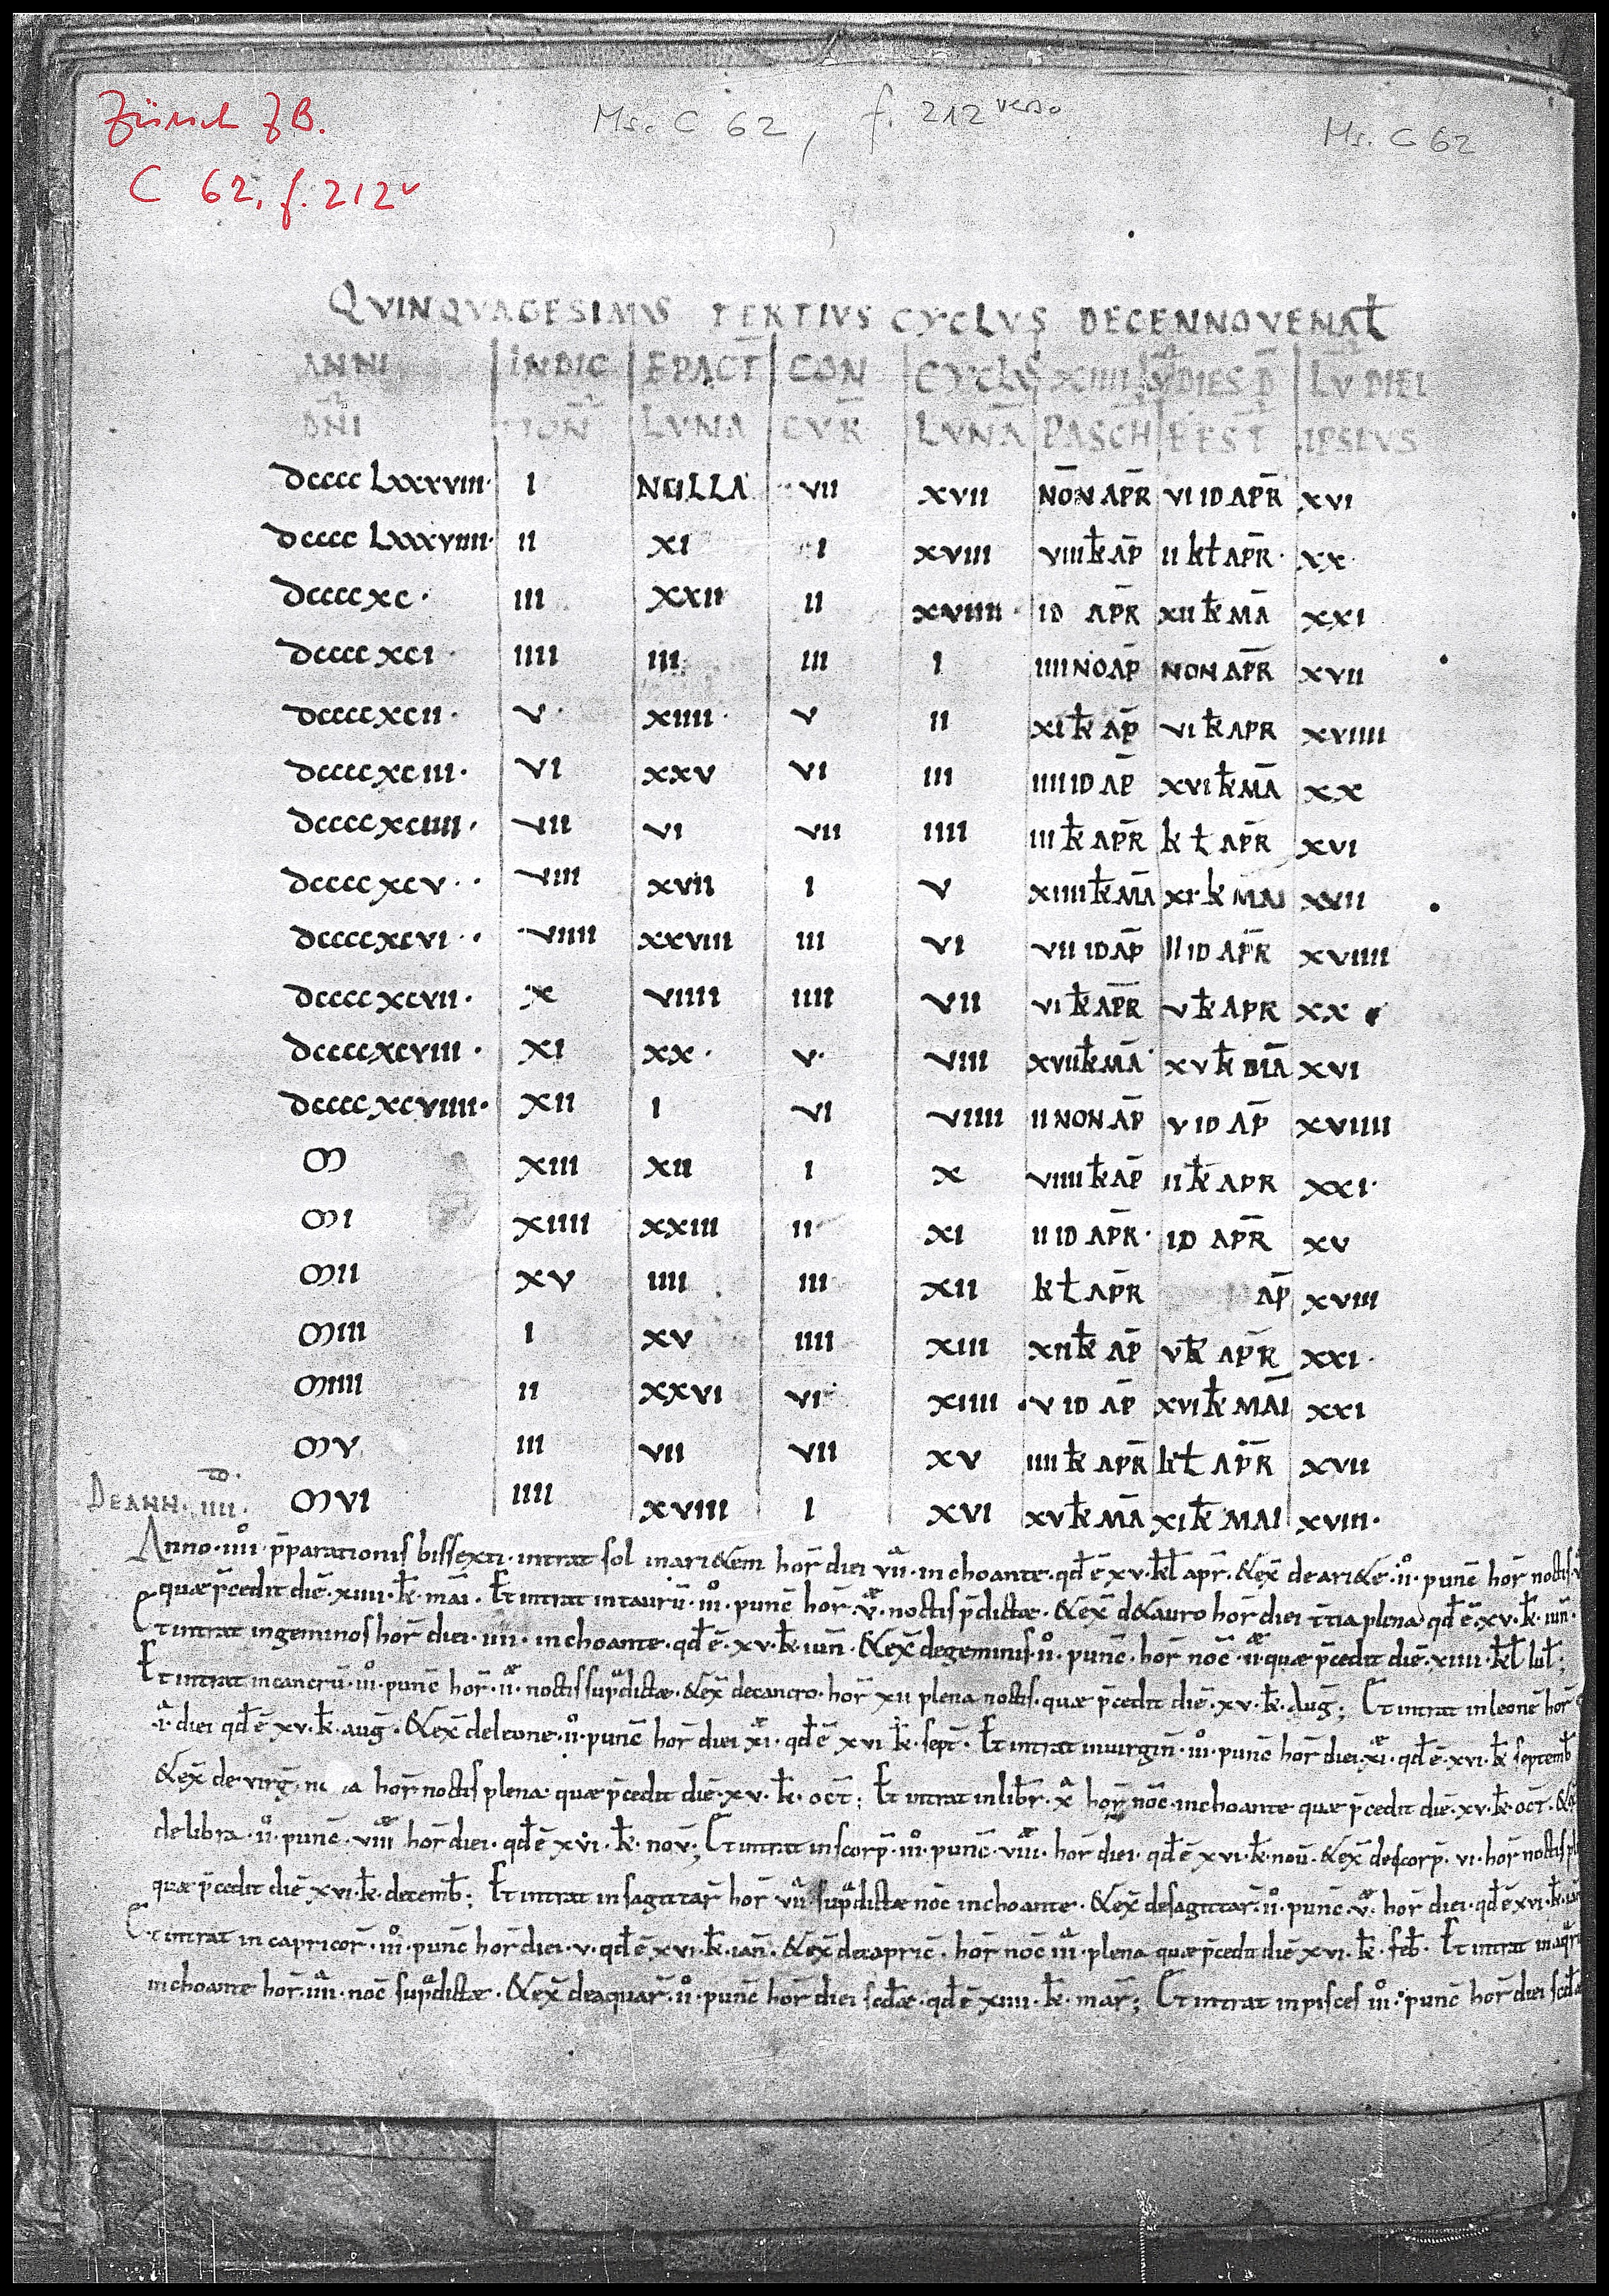 Zürich ZB.
C 62, f. 212v
Ms. C 62, f. 212 verso
Ms. C 62
QVINQVAGESIMVS TERTIVS CYCLVS DECENNOVENAL̄
ANNI INDIC EPACT̄ CON CYCLVS XIIII LV̄ DIES D̄ LV̄ DIEI
DN̄I TION̄ LVNA CVR̄ LVNĀ PASCH̄ FEST̄ IPSIVS
dcccc Lxxxviii· I NULLA VII XVII NŌN APR̄ VI ID APR̄ XVI
dcccc Lxxxviiii· II XI I XVIII VIII k̄ AP̄ II kł APR̄· XX·
dcccc xc· III XXII II XVIIII· ID APR̄ XII k̄ MĀ XXI
dcccc xci· IIII III III I IIII NO AP̄ NON APR̄ XVII
dcccc xcii· V· XIIII· V II XI k̄ AP̄ VI k̄ APR XVIIII
dcccc xciii· VI XXV VI III IIII ID AP̄ XVI k̄ MĀ XX
dcccc xciiii· VII VI VII IIII III k̄ APR̄ k ł APR̄ XVI
dcccc xcv·· VIII XVII I V XIIII k̄ MĀ XI k MAI XVII
dcccc xcvi·· VIIII XXVIII III VI VII ID AP̄ II ID APR̄ XVIIII
dcccc xcvii· X VIIII IIII VII VI k̄ APR̄ V k̄ APR XX
dcccc xcviii· XI XX· V· VIII XVII k̄ MĀ XV k̄ MĀ XVI
dcccc xcviiii· XII I VI VIIII II NON AP̄ V ID AP̄ XVIIII
M XIII XII I X VIIII k̄ AP̄ II k̄ APR XXI·
MI XIIII XXIII II XI II ID APR̄· ID APR̄ XV
MII XV IIII III XII kł APR̄ AP̄ XVIII
MIII I XV IIII XIII XII k̄ AP̄ V k̄ APR̄ XXI·
MIIII II XXVI VI XIIII V ID AP̄ XVI k̄ MAI XXI
MV III VII VII XV IIII k̄ APR̄ kł APR̄ XVII
DE ANN· IIII· MVI IIII XVIIII I XVI XV k̄ MĀ XI k̄ MAI XVIII·
Anno· iiii · p̄parationis bissexti · intrat sol in ari&em hor̄ diei vii · inchoante · qđ ē xv · kł apr̄ · &ex̄ de ari&e · ii · punc̄ hor̄ noctis
quæ p̄cedit diē · xiiii · k̄ · mai · Et intrat in taurū · iii · punc̄ hor̄ · v · noctis p̄dictæ · &ex̄ d&auro hor̄ diei t̄tia plena qđ ē · xv · k̄ · iun̄ ·
Et intrat in geminos hor̄ diei · iiii · inchoante · qđ ē · xv · k̄ · iun̄ · &ex̄ de geminis · ii · punc̄ · hor̄ noc̄ · ii · quæ p̄cedit diē · xiiii · kł iuł ;
Et intrat in cancrū · iii · punc̄ hor̄ · ii · noctis sup̄dictæ · &ex̄ de cancro · hor̄ xii plena noctis · quæ p̄cedit diē · xv · k̄ · Auḡ ; Et intrat in leonē hor̄
· i · diei qđ ē xv · k̄ · auḡ · &ex̄ de leone · ii · punc̄ hor̄ diei xi · qđ ē xvi k̄ · sept̄ · Et intrat in uirgin̄ · iii · punc̄ hor̄ diei · xi · qđ ē · xvi · k̄ septemb̄
&ex̄ de virḡ hor̄ noctis plena quæ p̄cedit diē · xv · k̄ · oct̄ ; Et intrat in libr̄ · x hor̄ noc̄ · inchoante quæ p̄cedit diē · xv · k̄ · oct̄ · &ex̄
de libra · ii · punc̄ · viii hor̄ diei · qđ ē xvi · k̄ · nov̄ ; Et intrat in scorp̄ · iii · punc̄ · viii · hor̄ diei · qđ ē xvi · k̄ · nou̅ · &ex̄ de scorp̄ · vi · hor̄ noctis
quæ p̄cedit diē xvi · k̄ · decemb̄ ; Et intrat in sagittar̄ hor̄ vii sup̄dictæ noc̄ inchoante · &ex̄ de sagittar̄ · ii · punc̄ · v · hor̄ diei · qđ ē xvi · k̄ ·
Et intrat in capricor̄ · iii · punc̄ hor̄ diei · v · qđ ē xvi · k̄ · ian̄ · &ex̄ de capric̄ · hor̄ noc̄ iii · plena quæ p̄cedit diē xvi · k̄ · feb̄ · Et intrat in aqr̄
inchoante hor̄ · iiii · noc̄ sup̄dictæ · &ex̄ de aquar̄ · ii · punc̄ hor̄ diei scdæ · qđ ē xiiii · k̄ · mar̄ ; Et intrat in pisces iii · punc̄ hor̄ diei